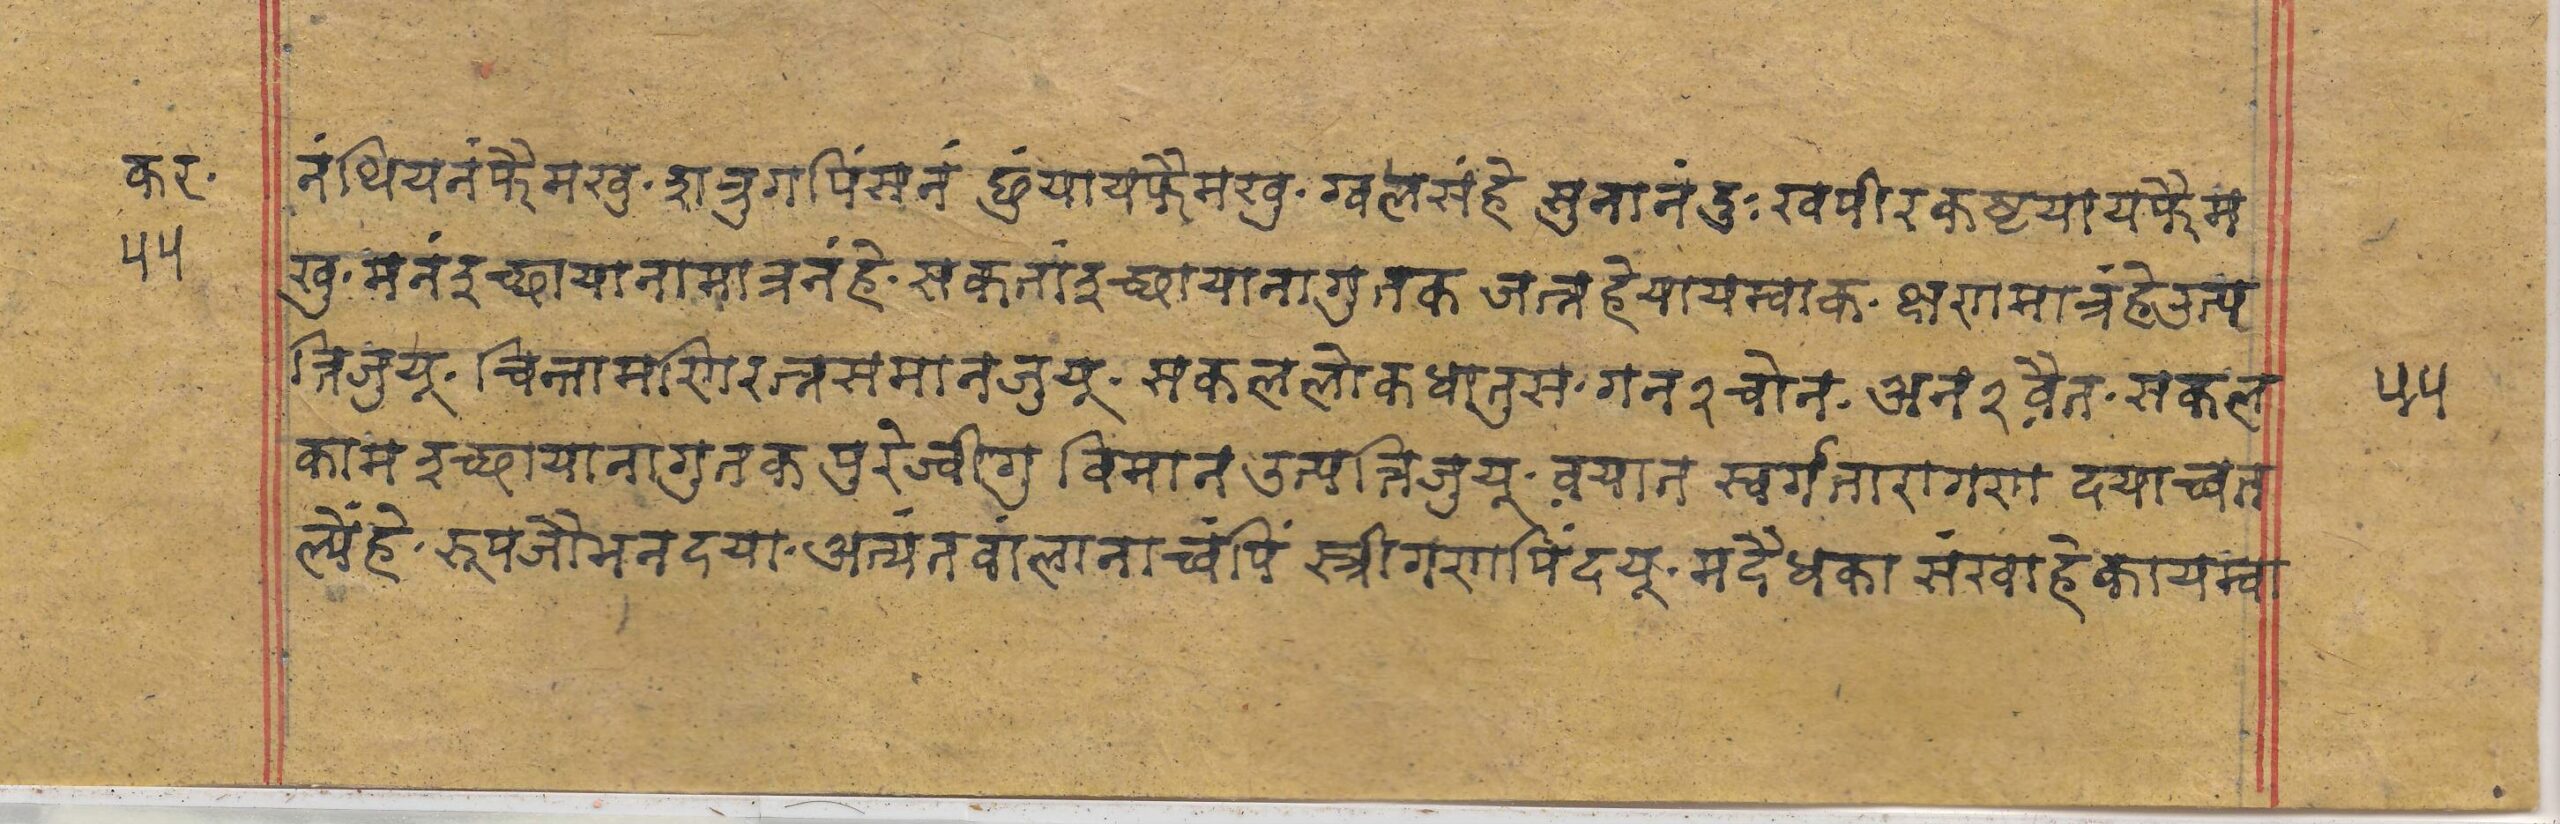 कर. नंथियनंफैमखु. शत्रुगपिंसनं छुंयायफैमखु. ग्वलसंहे सुनानंदुःखपीरकष्टयायफैम
५५ खु. मनंइच्छायानामात्रनंहे. सकतांइच्छायानागुतक जत्नहेयायम्वाक. क्षणमात्रंहेउत्प
त्तिजुयू. चिन्तामणिरत्नसमानजुयू. सकललोकधातुस. गन२चोन. अन२वैत. सकल ५५
काम इच्छायानागुतक पुरेज्वीगु विमान उत्पत्तिजुयू. वयात स्वर्गतारागण दयाच्वत
ल्यंहे. रूपजौभनदया. अत्यंतवांलानाच्वंपिं स्त्रीगणपिंदयू. मदैधका संखाहेकायम्वा